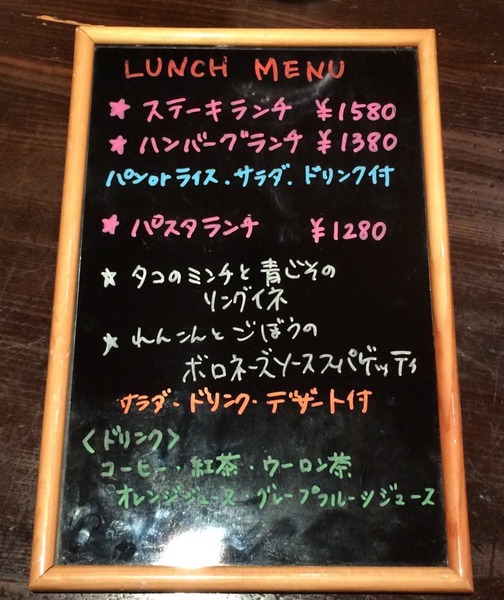 LUNCH MENU
★ ステーキランチ ¥1580
★ ハンバーグランチ ¥1380
パンorライス・サラダ・ドリンク付
★ パスタランチ ¥1280
★ タコのミンチと青じその
リングイネ
★ れんこんとごぼうの
ボロネーズソーススパゲッティ
サラダ・ドリンク・デザート付
〈ドリンク〉
コーヒー・紅茶・ウーロン茶
オレンジジュース グレープフルーツジュース